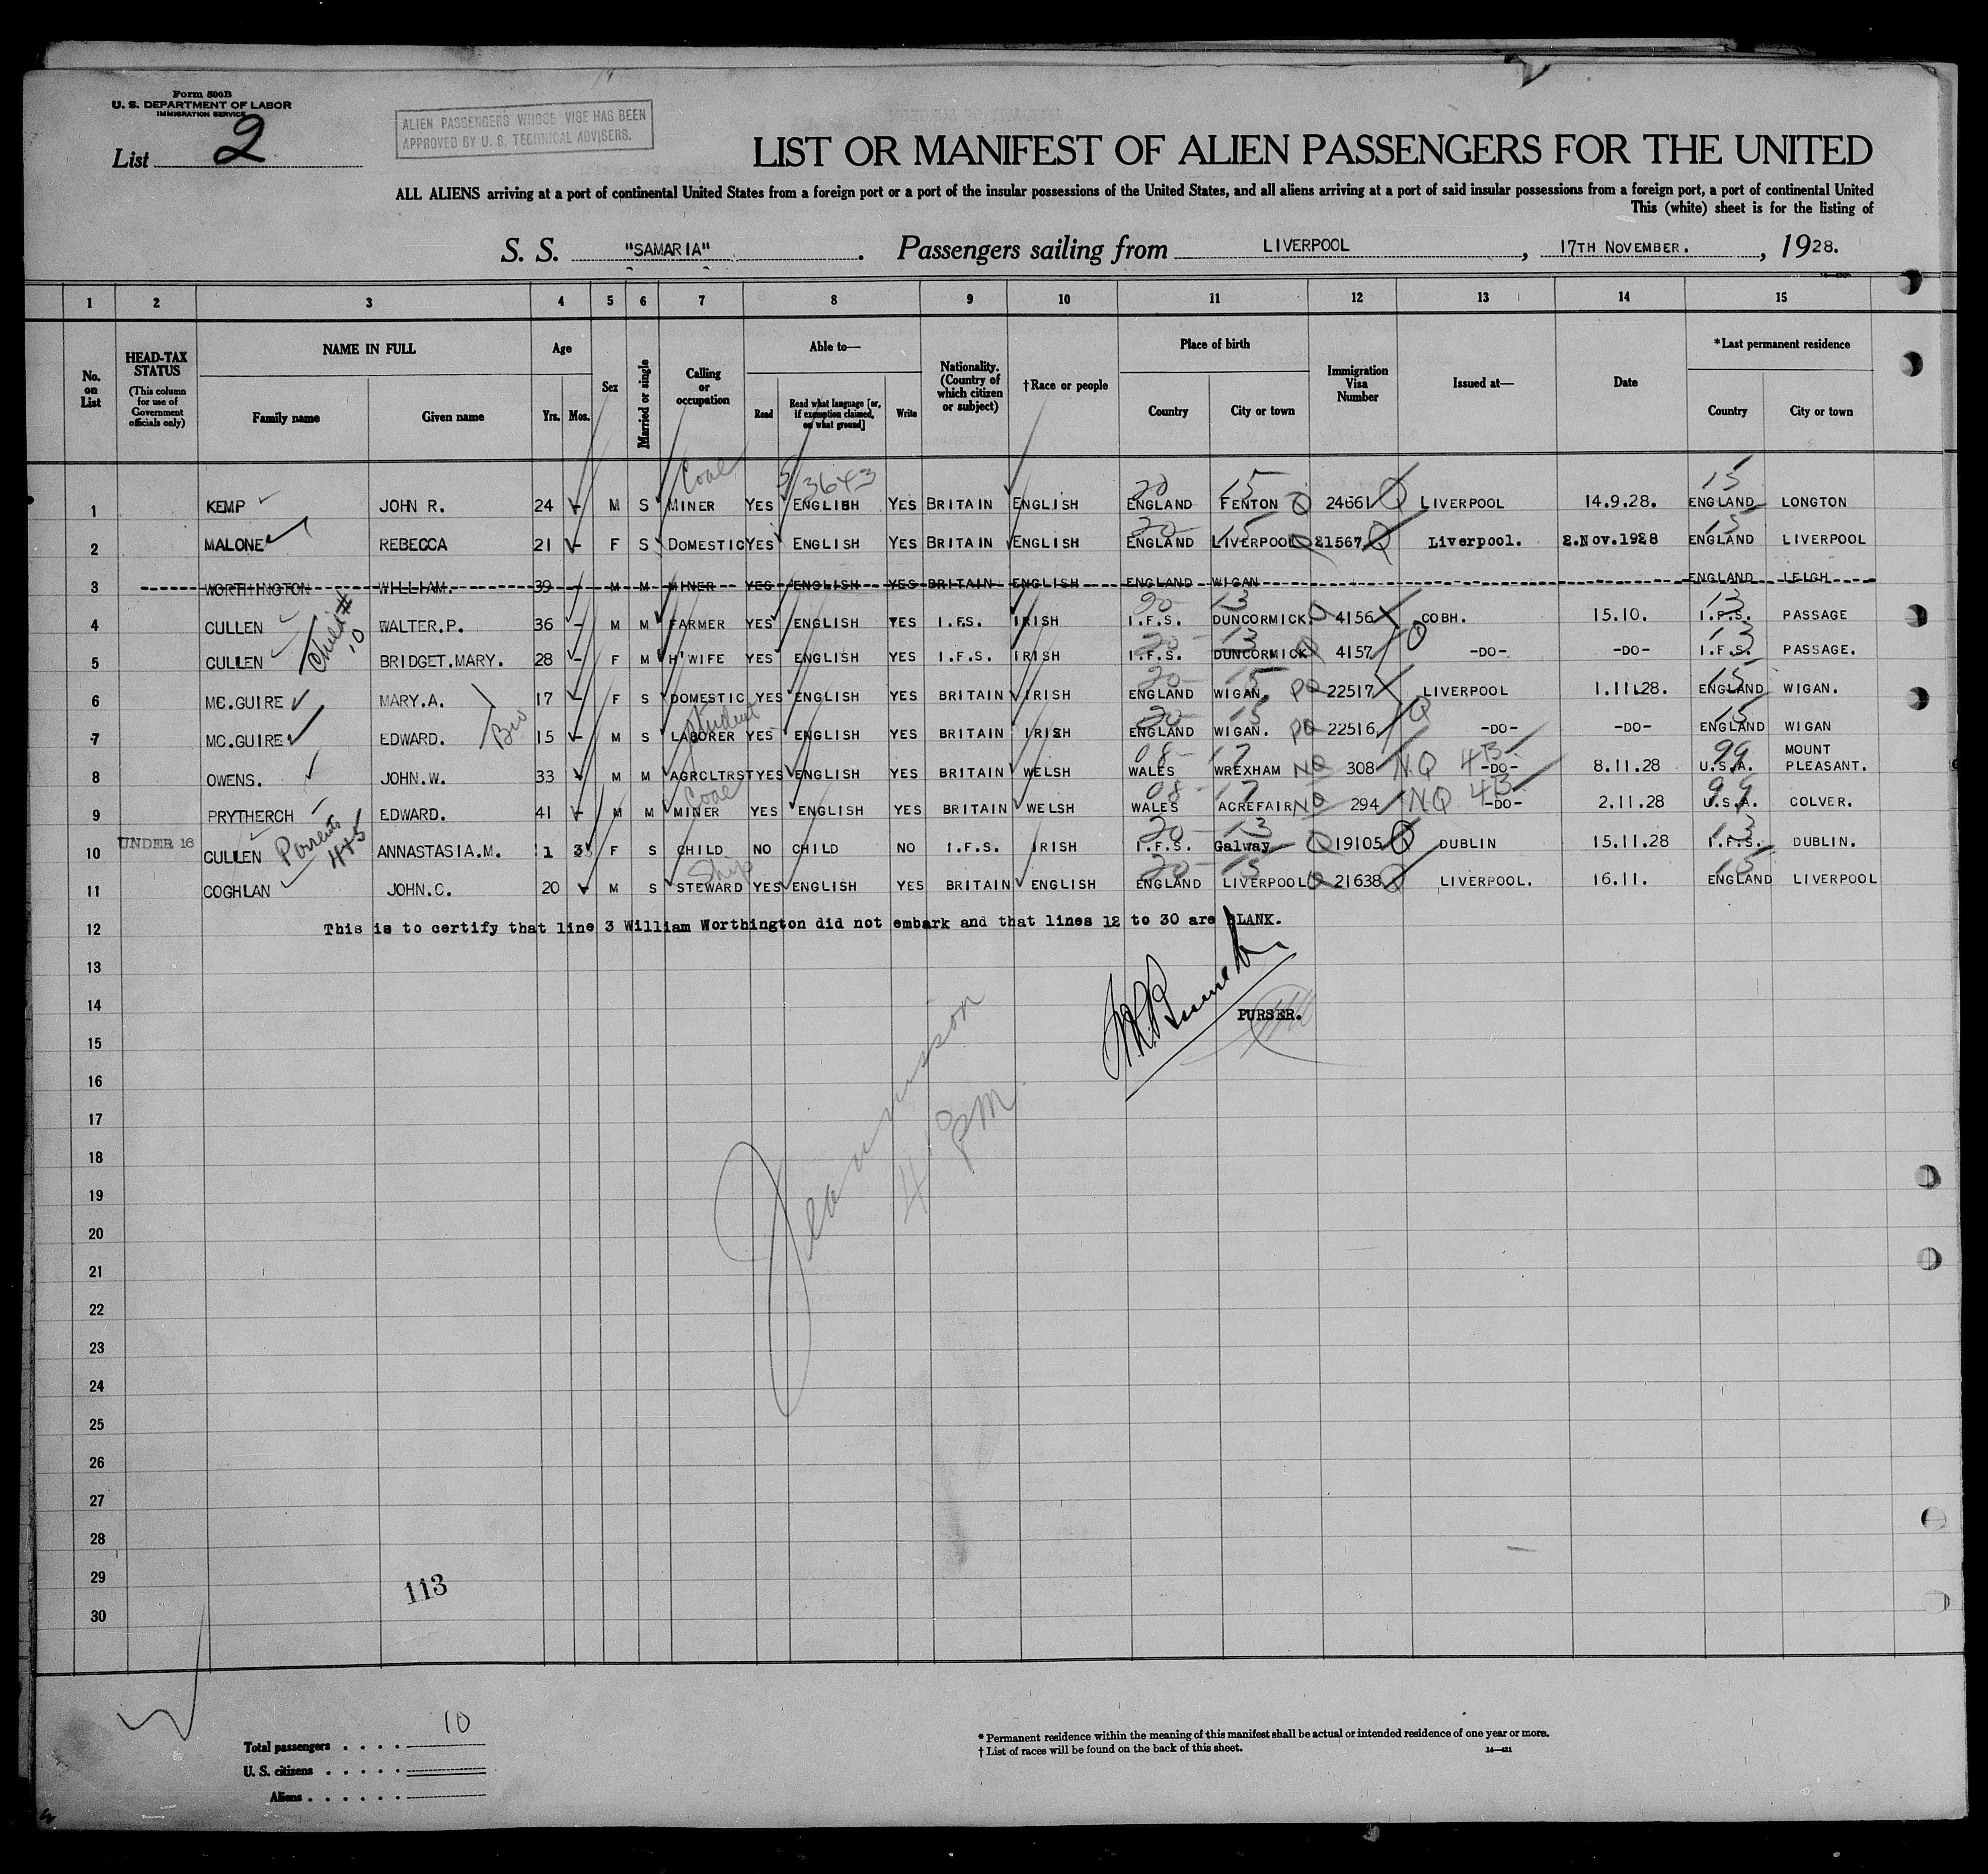 Form 500B
U. S. DEPARTMENT OF LABOR
IMMIGRATION SERVICE
List 2
ALIEN PASSENGERS WHOSE VISE HAS BEEN
APPROVED BY U. S. TECHNICAL ADVISERS.
LIST OR MANIFEST OF ALIEN PASSENGERS FOR THE UNITED
ALL ALIENS arriving at a port of continental United States from a foreign port or a port of the insular possessions of the United States, and all aliens arriving at a port of said insular possessions from a foreign port, a port of continental United
This (white) sheet is for the listing of
S. S. "SAMARIA". Passengers sailing from LIVERPOOL, 17TH NOVEMBER., 1928.
1 2 3 4 5 6 7 8 9 10 11 12 13 14 15
No. on List
HEAD-TAX STATUS
(This column for use of Government officials only)
NAME IN FULL
Family name Given name
Age
Yrs. Mos.
Sex
Married or single
Calling or occupation
Able to—
Read
Read what language [or, if exemption claimed, on what ground]
Write
Nationality. (Country of which citizen or subject)
†Race or people
Place of birth
Country City or town
Immigration Visa Number
Issued at—
Date
*Last permanent residence
Country City or town
Coal 3643 20 15 15
1 KEMP JOHN R. 24 - M S MINER YES ENGLISH YES BRITAIN ENGLISH ENGLAND FENTON Q 24661 Q LIVERPOOL 14.9.28. ENGLAND LONGTON
20 15 15
2 MALONE REBECCA 21 - F S DOMESTIC YES ENGLISH YES BRITAIN ENGLISH ENGLAND LIVERPOOL Q 21567 Q Liverpool. 2.Nov.1928 ENGLAND LIVERPOOL
3 WORTHINGTON WILLIAM. 39 - M M MINER YES ENGLISH YES BRITAIN ENGLISH ENGLAND WIGAN ENGLAND LEIGH
20 13 13
4 CULLEN Child # 10 WALTER.P. 36 - M M FARMER YES ENGLISH YES I.F.S. IRISH I.F.S. DUNCORMICK. 4156 COBH. 15.10. I.F.S. PASSAGE
20 13 Q 13
5 CULLEN BRIDGET.MARY. 28 - F M H'WIFE YES ENGLISH YES I.F.S. IRISH I.F.S. DUNCORMICK 4157 -DO- -DO- I.F.S. PASSAGE.
20 15 15
6 MC.GUIRE MARY.A. 17 - F S DOMESTIC YES ENGLISH YES BRITAIN IRISH ENGLAND WIGAN. PQ 22517 LIVERPOOL 1.11.28. ENGLAND WIGAN.
Bro Student 20 15 Q 15
7 MC.GUIRE EDWARD. 15 - M S LABORER YES ENGLISH YES BRITAIN IRISH ENGLAND WIGAN. PQ 22516 -DO- -DO- ENGLAND WIGAN
08 17 99 MOUNT
8 OWENS. JOHN.W. 33 - M M AGRCLTRST YES ENGLISH YES BRITAIN WELSH WALES WREXHAM NQ 308 NQ 4B -DO- 8.11.28 U.S.A. PLEASANT.
Coal 08 17 99
9 PRYTHERCH EDWARD. 41 - M M MINER YES ENGLISH YES BRITAIN WELSH WALES ACREFAIR NQ 294 NQ 4B -DO- 2.11.28 U.S.A. COLVER.
20 13 13
10 UNDER 16 CULLEN Parents 4+5 ANNASTASIA.M. 1 3 F S CHILD NO CHILD NO I.F.S. IRISH I.F.S. Galway Q 19105 Q DUBLIN 15.11.28 I.F.S. DUBLIN.
Ship 20 15 15
11 COGHLAN JOHN.C. 20 - M S STEWARD YES ENGLISH YES BRITAIN ENGLISH ENGLAND LIVERPOOL Q 21638 Q LIVERPOOL. 16.11. ENGLAND LIVERPOOL
12 This is to certify that line 3 William Worthington did not embark and that lines 12 to 30 are BLANK.
13
14
PURSER.
15
16
17
4 PM
18
19
20
21
22
23
24
25
26
27
28
29
113
30
Total passengers . . . . 10
U. S. citizens . . . . .
Aliens . . . . . .
* Permanent residence within the meaning of this manifest shall be actual or intended residence of one year or more.
† List of races will be found on the back of this sheet.
14—431